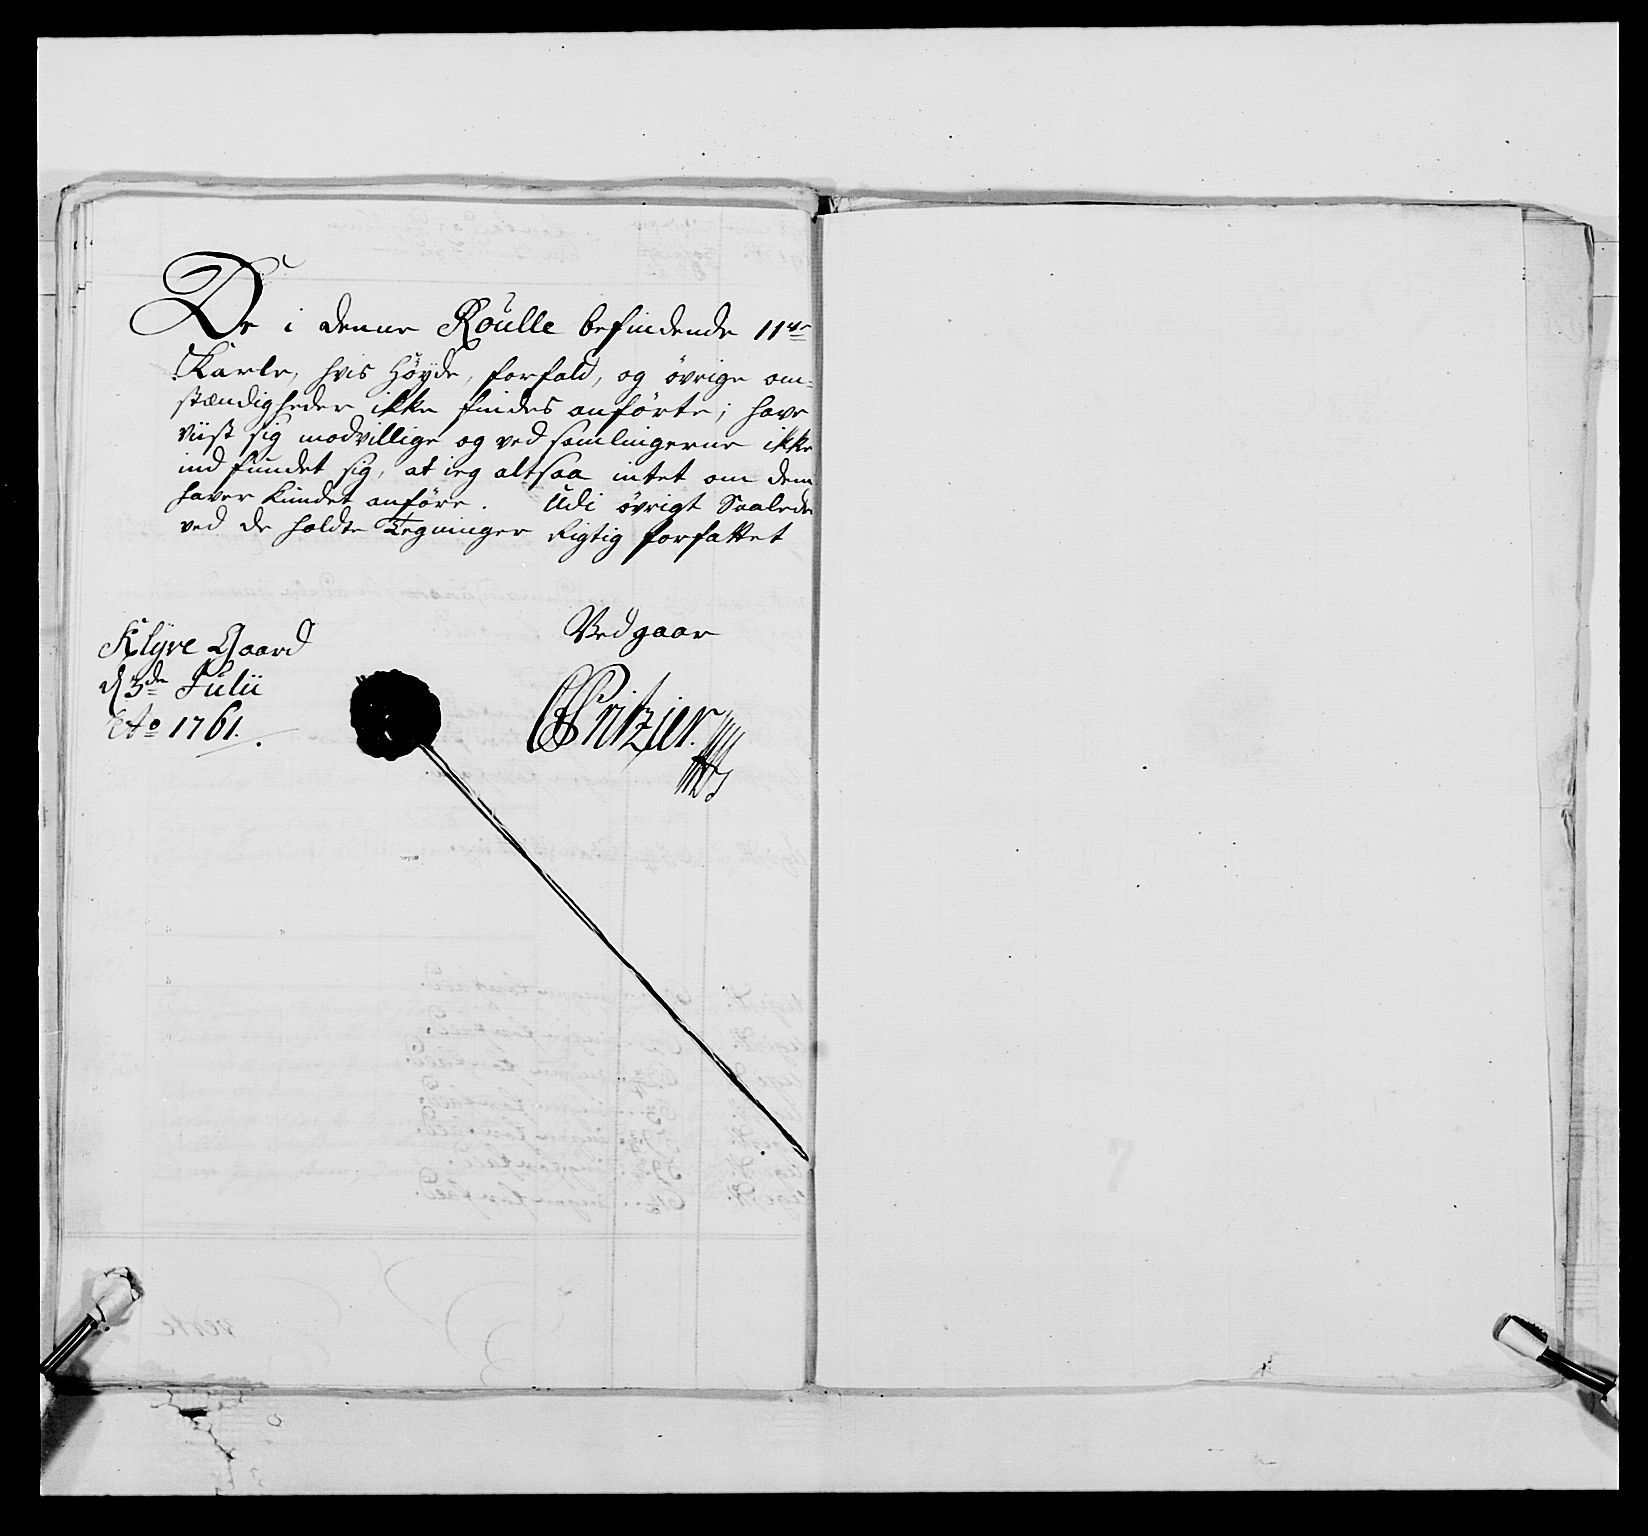 De i denne Roulle befindende 11ve
Karle, hvis Höyde, forfald, og övrige om=
stændigheder ikke findes anförte; have
viist sig modvillige og ved samlingerne ikke
ind fundet sig, at ieg altsaa intet om dem
haver kundet anföre. Udi övrigt Saaledes
ved de holdte Tegninger Rigtig forfattet
Vedgaar
Klyve Gaard
d 3de Julii
Ao 1761.
Fritzier.